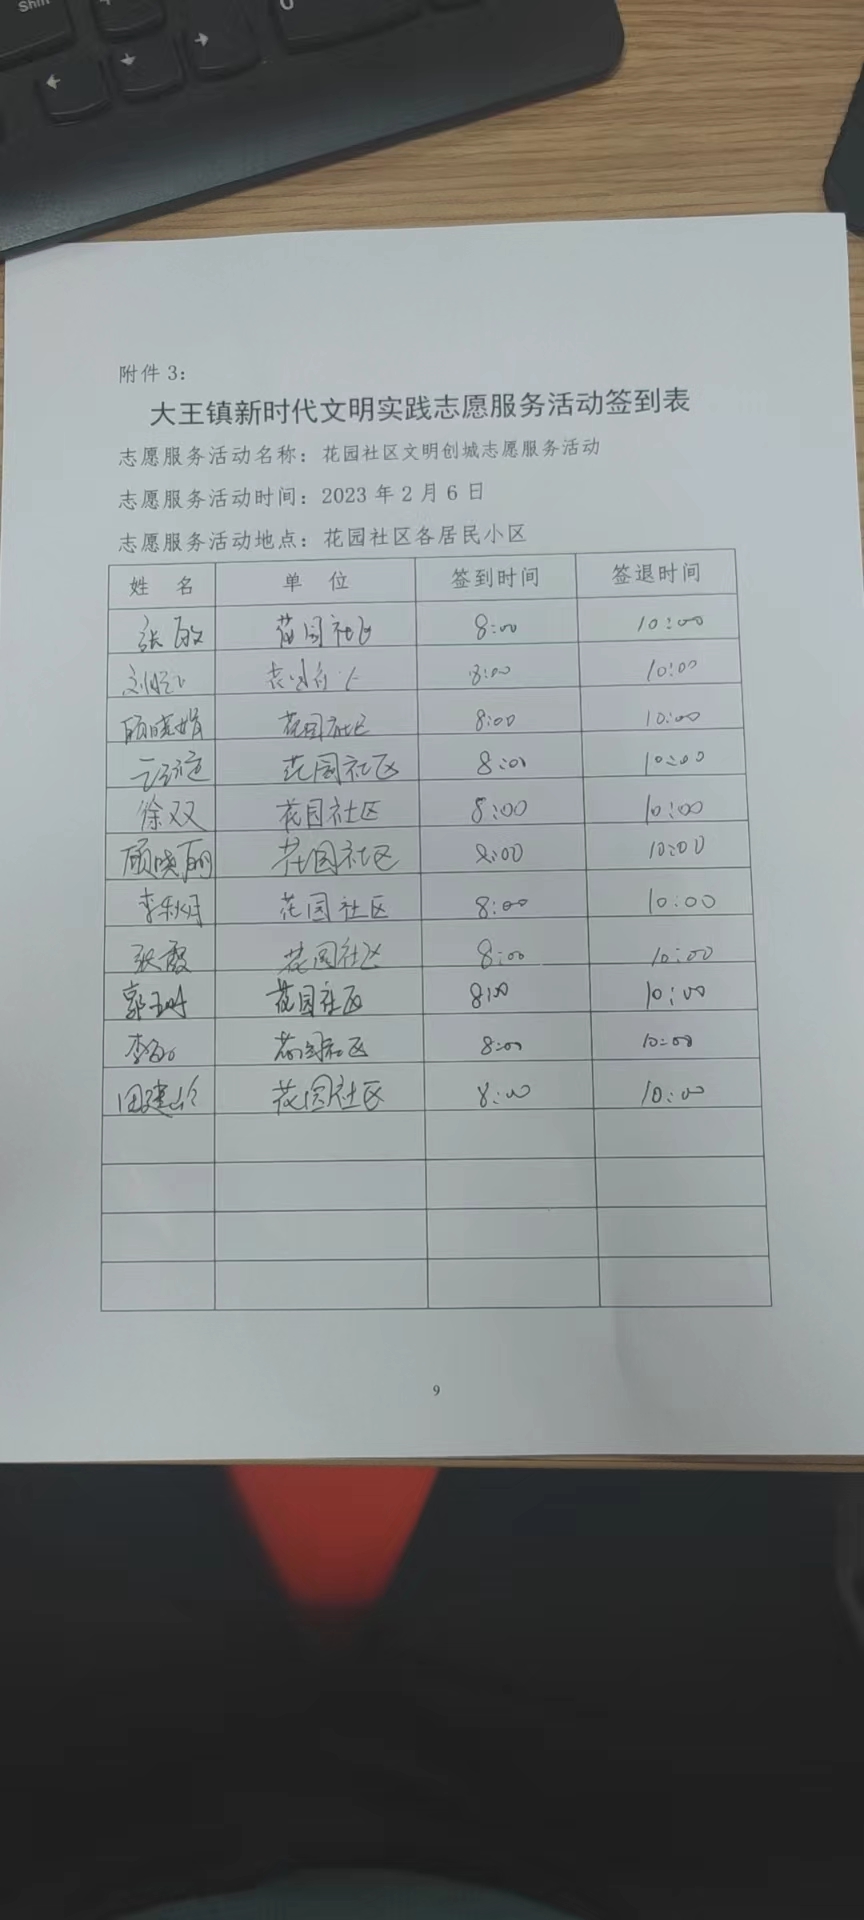 Shift
0
附件 3：
大王镇新时代文明实践志愿服务活动签到表
志愿服务活动名称：花园社区文明创城志愿服务活动
志愿服务活动时间：2023 年 2 月 6 日
志愿服务活动地点：花园社区各居民小区
姓 名 单 位 签到时间 签退时间
张敏 花园社区 8:00 10:00
8:00 10:00
顾晓娟 花园社区 8:00 10:00
花园社区 8:00 10:00
徐双双 花园社区 8:00 10:00
顾晓丽 花园社区 8:00 10:00
李秋月 花园社区 8:00 10:00
张霞 花园社区 8:00 10:00
花园社区 8:00 10:00
花园社区 8:00 10:00
田建 花园社区 8:00 10:00
9